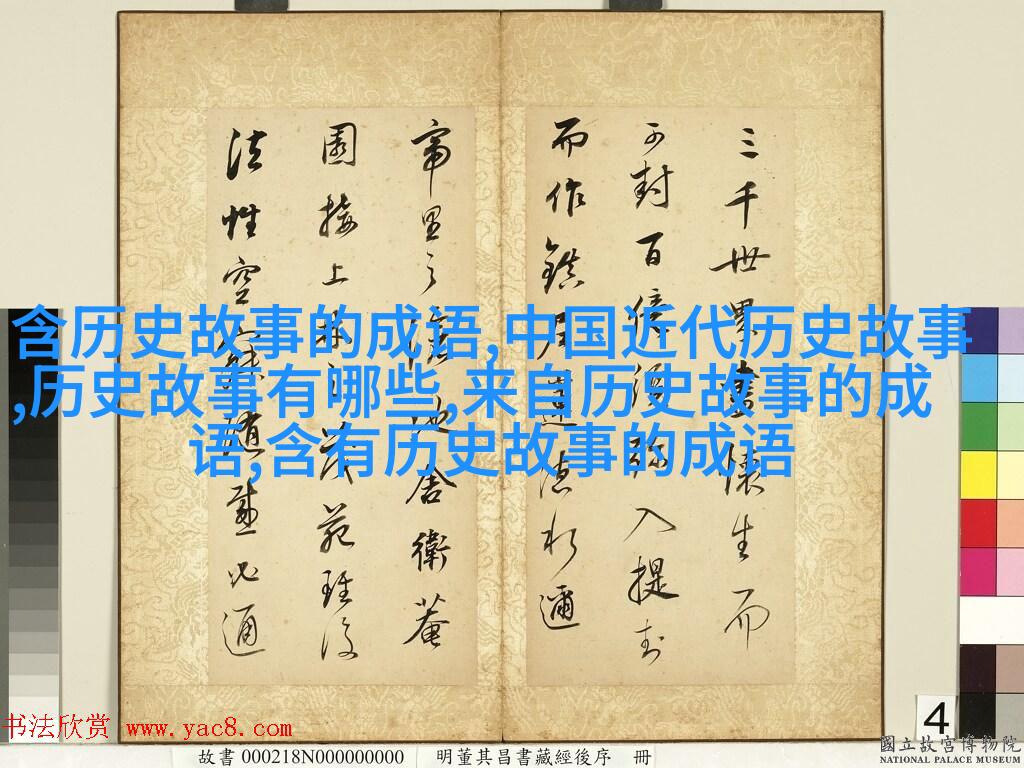 三千世界盡懷生而
可封百億須彌入提封
而作鎮邇
帝里之池舍衛菴
園接上林之茂苑
法性空寂隨感必通
含历史故事的成语,中国近代历史故事
,历史故事有哪些,来自历史故事的成
语,含有历史故事的成语
4
书法欣赏 www.yac8.com
故書 000218N000000000 明董其昌書藏經後序 冊
國立故宮博物院
NATIONAL PALACE MUSEUM